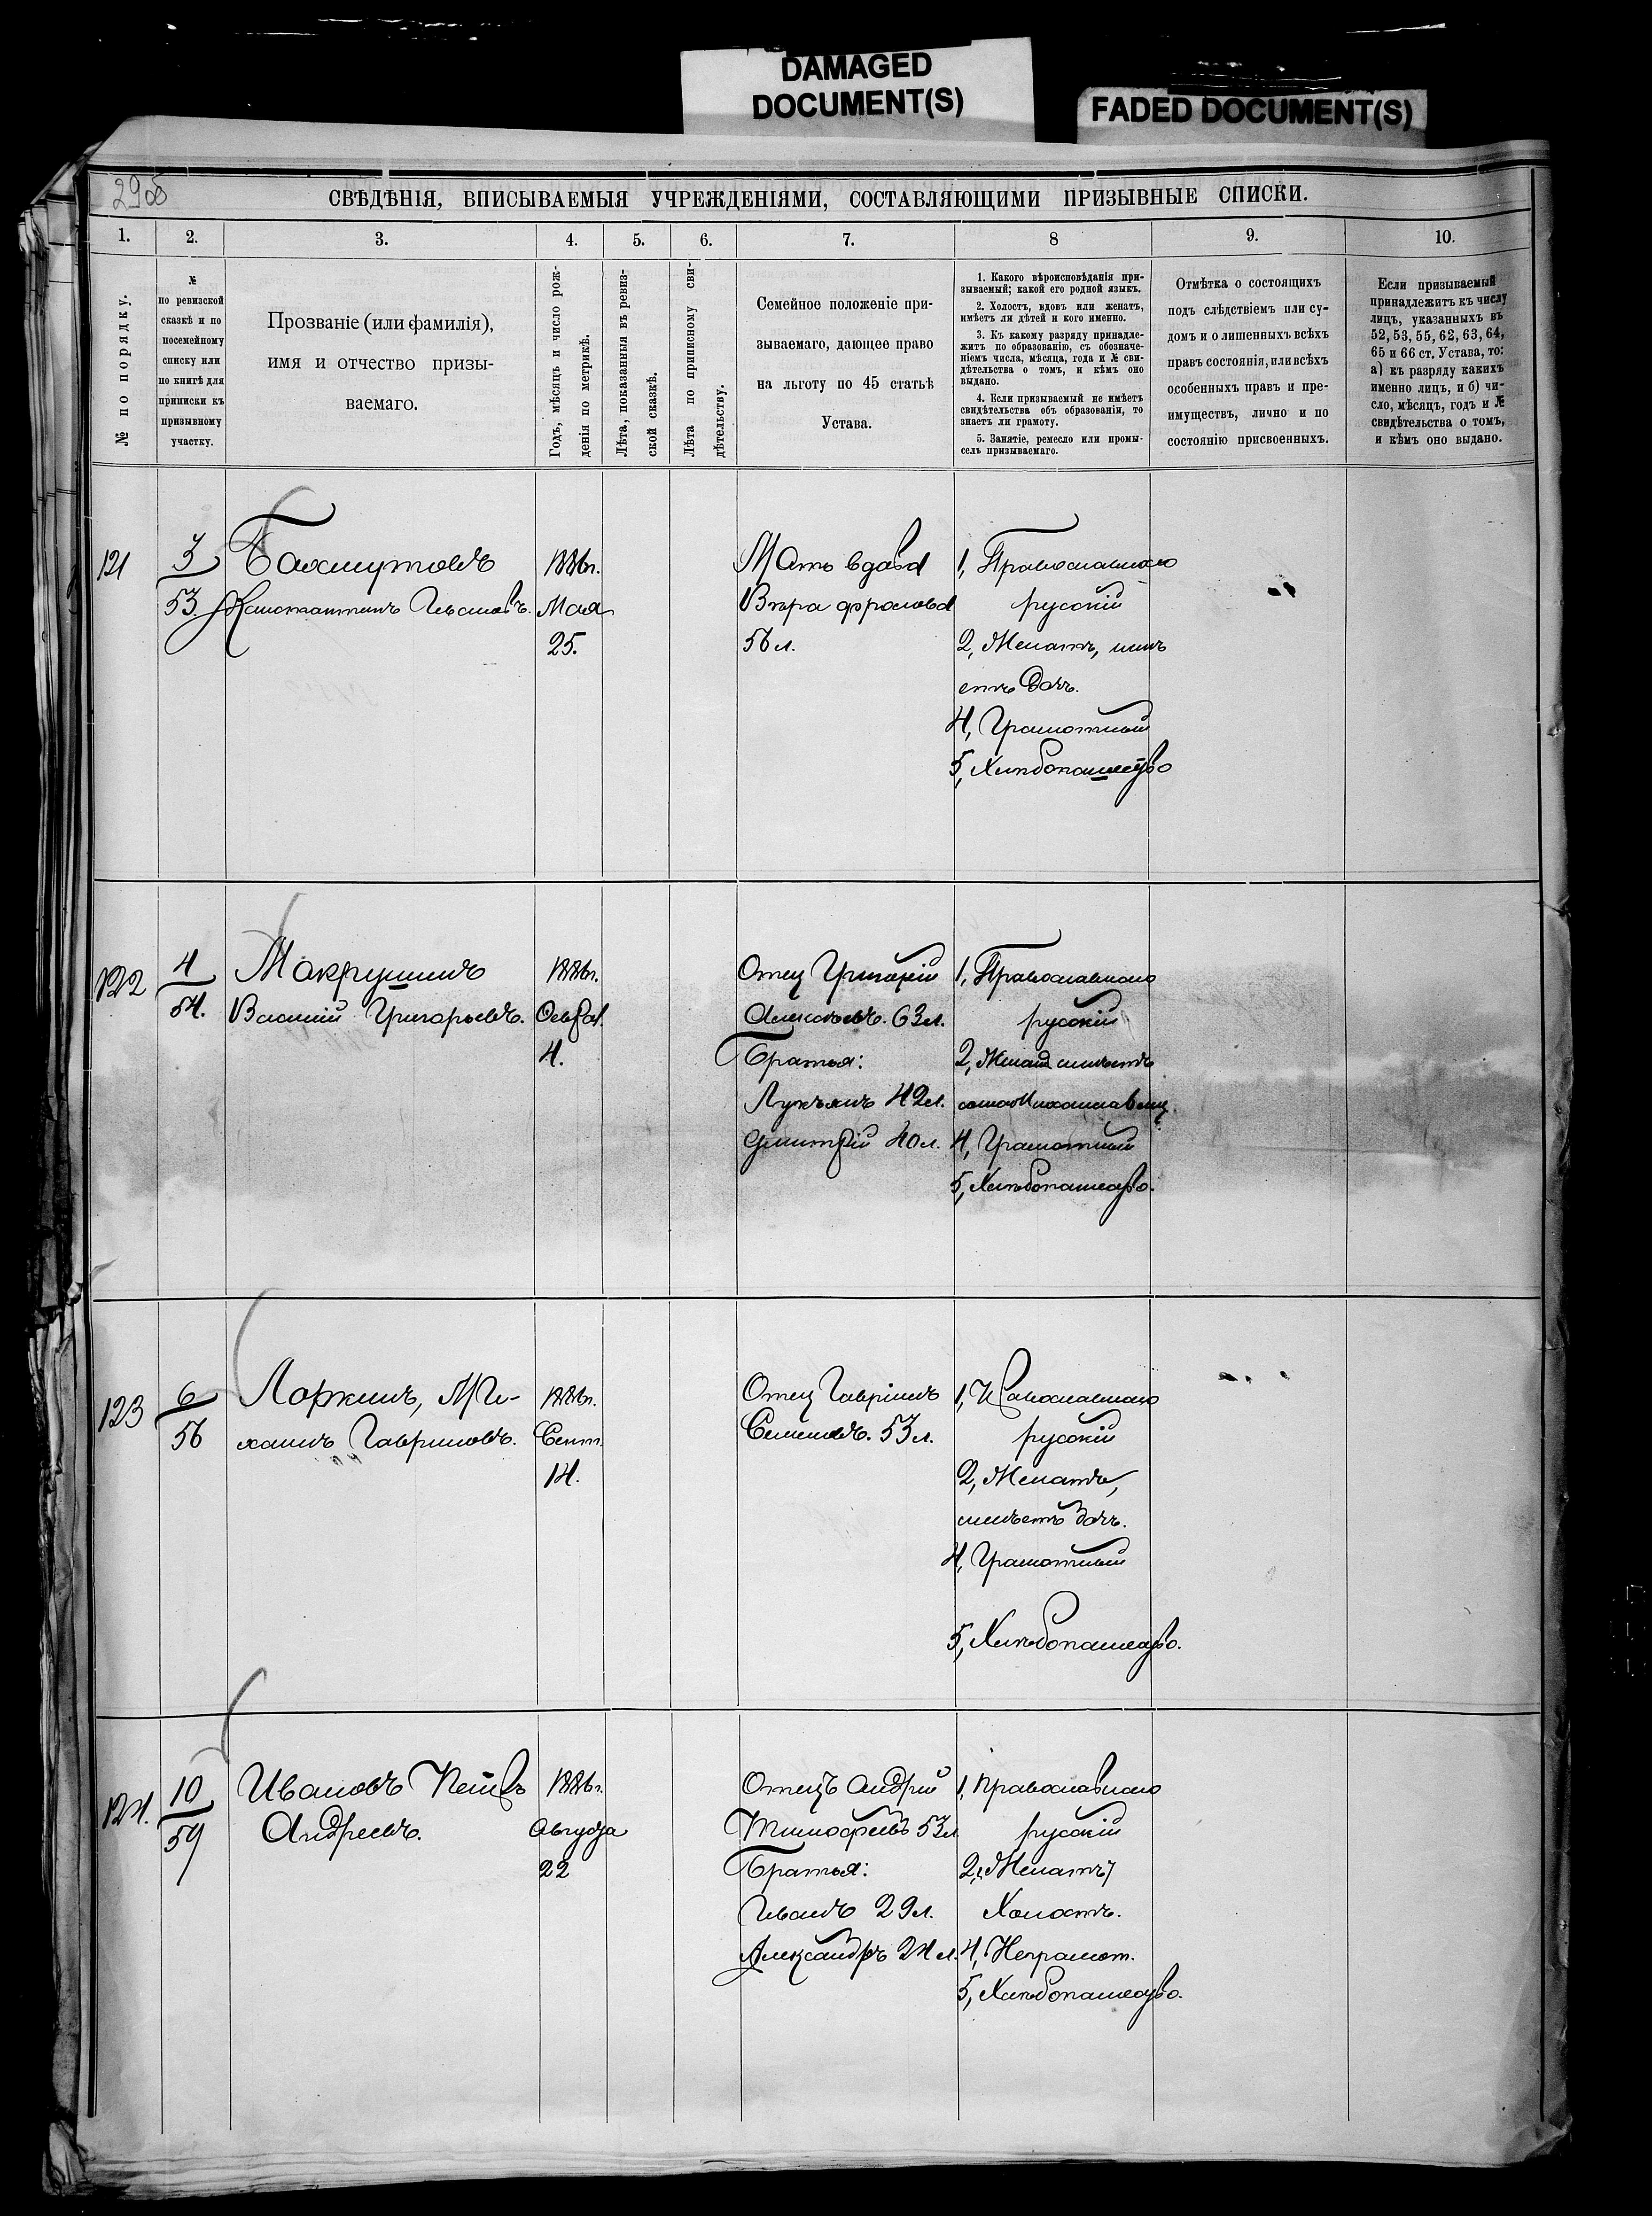 DAMAGED
DOCUMENT(S)
FADED DOCUMENT(S)
СВѢДѢНІЯ, ВПИСЫВАЕМЫЯ УЧРЕЖДЕНІЯМИ, СОСТАВЛЯЮЩИМИ ПРИЗЫВНЫЕ СПИСКИ.
1.
2.
3.
4.
5.
6.
7.
8
9.
10.
№ по порядку.
№
по ревизской
сказкѣ и по
посемейному
списку или
по книгѣ для
приписки къ
призывному
участку.
Прозваніе (или фамилія),
имя и отчество призы-
ваемаго.
Годъ, мѣсяцъ и число рож-
денія по метрикѣ.
Лѣта, показанныя въ ревиз-
ской сказкѣ.
Лѣта по приписному сви-
дѣтельству.
Семейное положеніе при-
зываемаго, дающее право
на льготу по 45 статьѣ
Устава.
1. Какого вѣроисповѣданія при-
зываемый; какой его родной языкъ.
2. Холостъ, вдовъ или женатъ,
имѣетъ ли дѣтей и кого именно.
3. Къ какому разряду принадле-
житъ по образованію, съ обозначе-
ніемъ числа, мѣсяца, года и № сви-
дѣтельства о томъ, и кѣмъ оно
выдано.
4. Если призываемый не имѣетъ
свидѣтельства объ образованіи, то
знаетъ ли грамоту.
5. Занятіе, ремесло или промы-
селъ призываемаго.
Отмѣтка о состоящихъ
подъ слѣдствіемъ или су-
домъ и о лишенныхъ всѣхъ
правъ состоянія, или всѣхъ
особенныхъ правъ и пре-
имуществъ, лично и по
состоянію присвоенныхъ.
Если призываемый
принадлежитъ къ числу
лицъ, указанныхъ въ
52, 53, 55, 62, 63, 64,
65 и 66 ст. Устава, то:
а) къ разряду какихъ
именно лицъ, и б) чи-
сло, мѣсяцъ, годъ и №
свидѣтельства о томъ,
и кѣмъ оно выдано.
121
3
53.
Бахмутовъ
Константинъ Ивановъ.
1886г.
Мая
25.
Мать вдова
Вѣра Фролова
56 л.
1, Православнаго
русскій
2, Женатъ, имѣ
етъ доч.
4, Грамотный
5, Хлѣбопашество
122
4
54.
Макрушинъ
Василій Григорьевъ.
1886г.
Февра.
4.
Отец Григорій
Алексѣевъ. 63 л.
Братья:
Лукьянъ 42 л.
Дмитрій 40 л.
1, Православнаго
русскій
2, Женатъ имѣетъ
сына Михаила
4, Грамотный
5, Хлѣбопашество.
123
6
56
Ларкинъ, Ми-
хаилъ Гавриловъ.
1886г.
Сент.
14.
Отец Гавріилъ
Семеновъ. 53 л.
1, Православнаго
русскій
2, Женатъ,
имѣетъ доч.
4, Грамотный
5, Хлѣбопашество.
124.
10
59
Ивановъ Петръ
Андреевъ.
1886г.
Августа
22
Отецъ Андрей
Тимофеевъ 53 л
Братья:
Иванъ 29 л.
Александръ 24 л.
1, Православнаго
русскій
2, (Женатъ)
Холостъ.
4, Неграмот.
5, Хлѣбопашество.